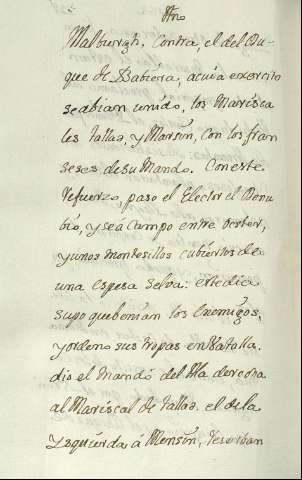 Año
Malburgh, Contra, el del Du-
que de Babiera, acuia exercito
seabian unido, los Marisca
les Tallad, y Marsin, con los fran
seses desu Mando. Coneste
refuerzo, paso el Elector el Danu
bio, y seá Campo entre
y unos montesillos cubiertos de
una espesa selva: estedia
supo quebenian los Enemigos,
y ordeno sus tropas en Batalla.
dio el mando del Ala derecha
al Mariscal de Tallad. el dela
Yzquierda á Mensin, reserban